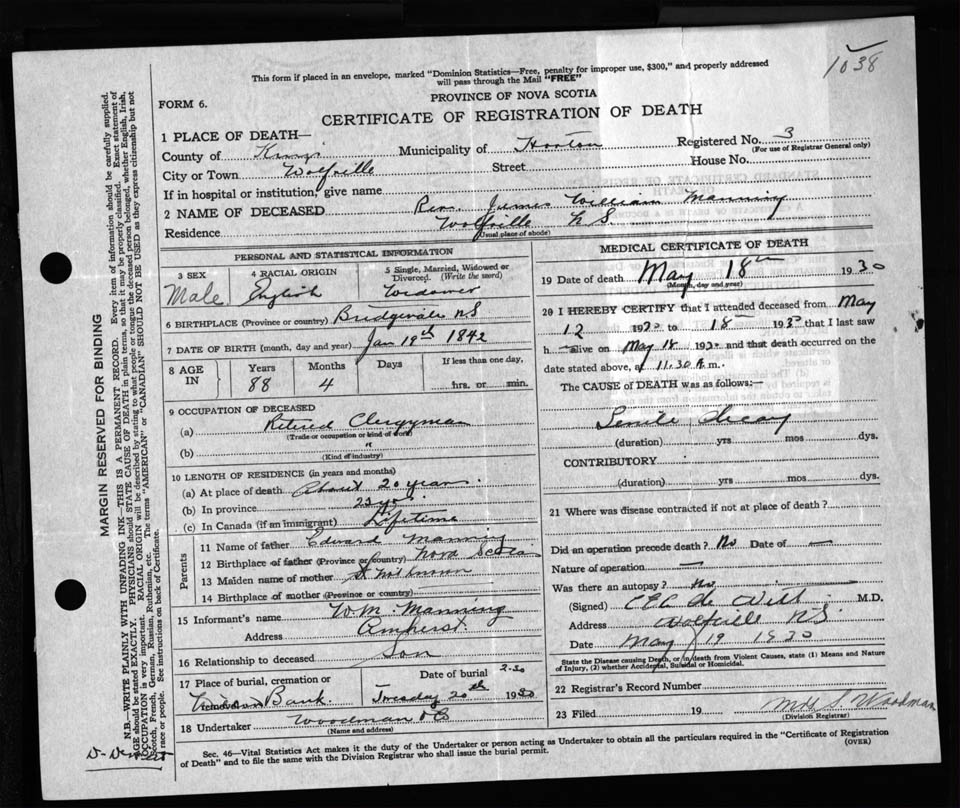 1038
This form if placed in an envelope, marked "Dominion Statistics—Free, penalty for improper use, $300," and properly addressed
will pass through the Mail "FREE"
FORM 6.
PROVINCE OF NOVA SCOTIA
CERTIFICATE OF REGISTRATION OF DEATH
1 PLACE OF DEATH—
Registered No. 3
(For use of Registrar General only)
County of Kings Municipality of Horton
City or Town Wolfville Street House No.
If in hospital or institution, give name
2 NAME OF DECEASED Rev. James William Manning
Residence Wolfville N S
(Usual place of abode)
PERSONAL AND STATISTICAL INFORMATION
3 SEX Male
4 RACIAL ORIGIN English
5 Single, Married, Widowed or Divorced. (Write the word) Widower
6 BIRTHPLACE (Province or country) Bridgewater NS
7 DATE OF BIRTH (month, day and year) Jan 19th 1842
8 AGE IN Years Months Days If less than one day,
88 4 hrs. or min.
9 OCCUPATION OF DECEASED
(a) Retired Clergyman
(Trade or occupation or kind of work)
(b) "
(Kind of industry)
10 LENGTH OF RESIDENCE (in years and months)
(a) At place of death About 20 years
(b) In province
(c) In Canada (if an immigrant) Lifetime
Parents
11 Name of father Edward Manning
12 Birthplace of father (Province or country) Nova Scotia
13 Maiden name of mother not known
14 Birthplace of mother (Province or country)
15 Informant's name W. M. Manning
Address Amherst.
16 Relationship to deceased Son
17 Place of burial, cremation or Date of burial 2.30
Bank Tuesday 20th 1930
18 Undertaker Woodman & Co
(Name and address)
MEDICAL CERTIFICATE OF DEATH
19 Date of death May 18th 1930
(Month, day and year)
20 I HEREBY CERTIFY that I attended deceased from May
12 1930 to 18 1930 that I last saw
h alive on May 18 1930 and that death occurred on the
date stated above, at 11.30 m.
The CAUSE of DEATH was as follows:—
Senile decay
(duration) yrs mos dys.
CONTRIBUTORY
(duration) yrs mos dys.
21 Where was disease contracted if not at place of death?
Did an operation precede death? No Date of —
Nature of operation —
Was there an autopsy? No
(Signed) de Witt M.D.
Address Wolfville NS
Date May 19 1930
State the Disease causing Death, or in death from Violent Causes, state (1) Means and Nature
of Injury, (2) whether Accidental, Suicidal or Homicidal.
22 Registrar's Record Number
23 Filed 19 Mrs S. Woodman
(Division Registrar)
Sec. 46—Vital Statistics Act makes it the duty of the Undertaker or person acting as Undertaker to obtain all the particulars required in the "Certificate of Registration
of Death" and to file the same with the Division Registrar who shall issue the burial permit.
(OVER)
MARGIN RESERVED FOR BINDING
N.B.—WRITE PLAINLY WITH UNFADING INK—THIS IS A PERMANENT RECORD. Every item of information should be carefully supplied.
AGE should be stated EXACTLY. PHYSICIANS should STATE CAUSE OF DEATH in plain terms, so that it may be properly classified. Exact statement of
OCCUPATION is very important. RACIAL ORIGIN will be described by stating to what people or tongue the deceased person belonged, whether English, Irish,
Scotch, French, German, Russian, Ruthenian, etc. The terms "AMERICAN" or "CANADIAN" SHOULD NOT BE USED as they express citizenship but not
a race or people. See instructions on back of Certificate.